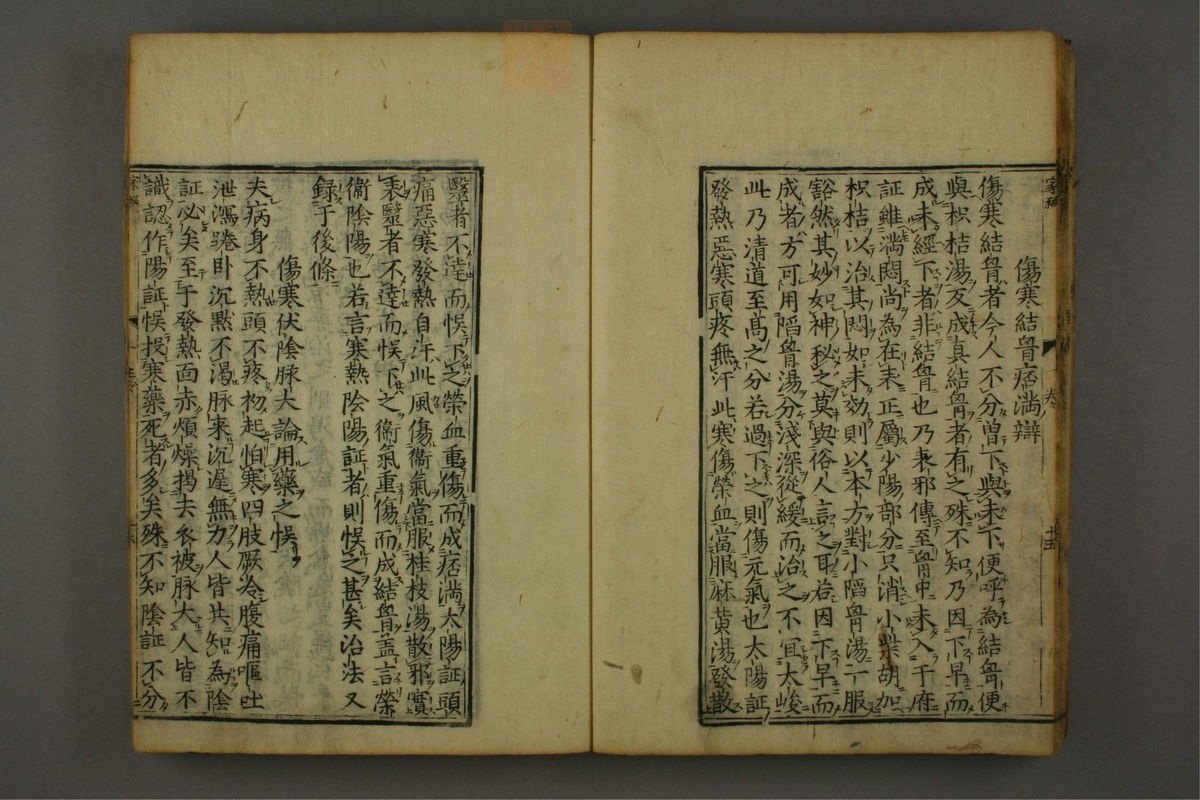 傷寒結胷痞満辯
傷寒結胷者今人不分曽下與未下便呼為結胷便
與枳桔湯反成真結胷者有之殊不知乃因下早而
成未經下者非結胷也乃表邪傳至胷中未入于府
証雖満悶尚為在表正屬少陽部分只消小柴胡加
枳桔以治其悶如未効則以本方對小䧟胷湯一服
豁然其妙如神秘之莫與俗人言之耳若因下早而
成者方可用䧟胷湯分淺深從緩而治之不宜太峻
此乃清道至髙之分若過下之則傷元氣也太陽証
發熱惡寒頭疼無汗此寒傷榮血當服麻黄湯發散
醫者不達而悞下之榮血重傷而成痞満太陽証頭
痛惡寒發熱自汗此風傷衞氣當服桂枝湯散邪實
表醫者不達而悞下之衞氣重傷而成結胷盖言榮
衞陰陽也若言寒熱陰陽証者則悞之甚矣治法又
録于後條
傷寒伏陰脉大論用藥之悞
夫病身不熱頭不疼初起怕寒四肢厥冷腹痛嘔吐
泄瀉踡卧沉黙不渴脉来沉遲無力人皆共知為陰
証必矣至于發熱面赤煩燥揭去衣被脉大人皆不
識認作陽証悞投寒藥死者多矣殊不知陰証不分